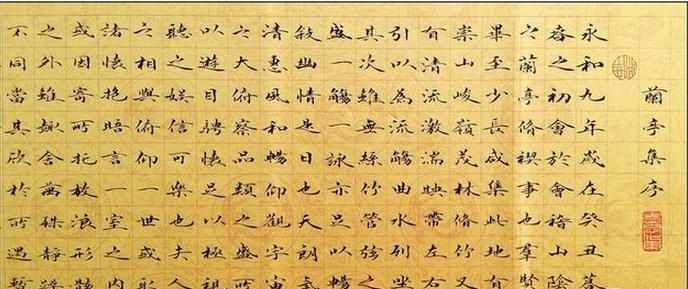 蘭亭集序
永和九年歲在癸丑暮
春之初會於會稽山陰
之蘭亭脩禊事也羣賢
畢至少長咸集此地有
崇山峻嶺茂林脩竹又
有清流激湍映帶左右
引以為流觴曲水列坐
其次雖無絲竹管弦之
盛一觴一詠亦足以暢
敘幽情是日也天朗氣
清惠風和暢仰觀宇宙
之大俯察品類之盛所
以遊目騁懷足以極視
聽之娛信可樂也夫人
之相與俯仰一世或取
諸懷抱晤言一室之內
或因寄所托放浪形骸
之外雖趣舍萬殊靜躁
不同當其欣於所遇暫